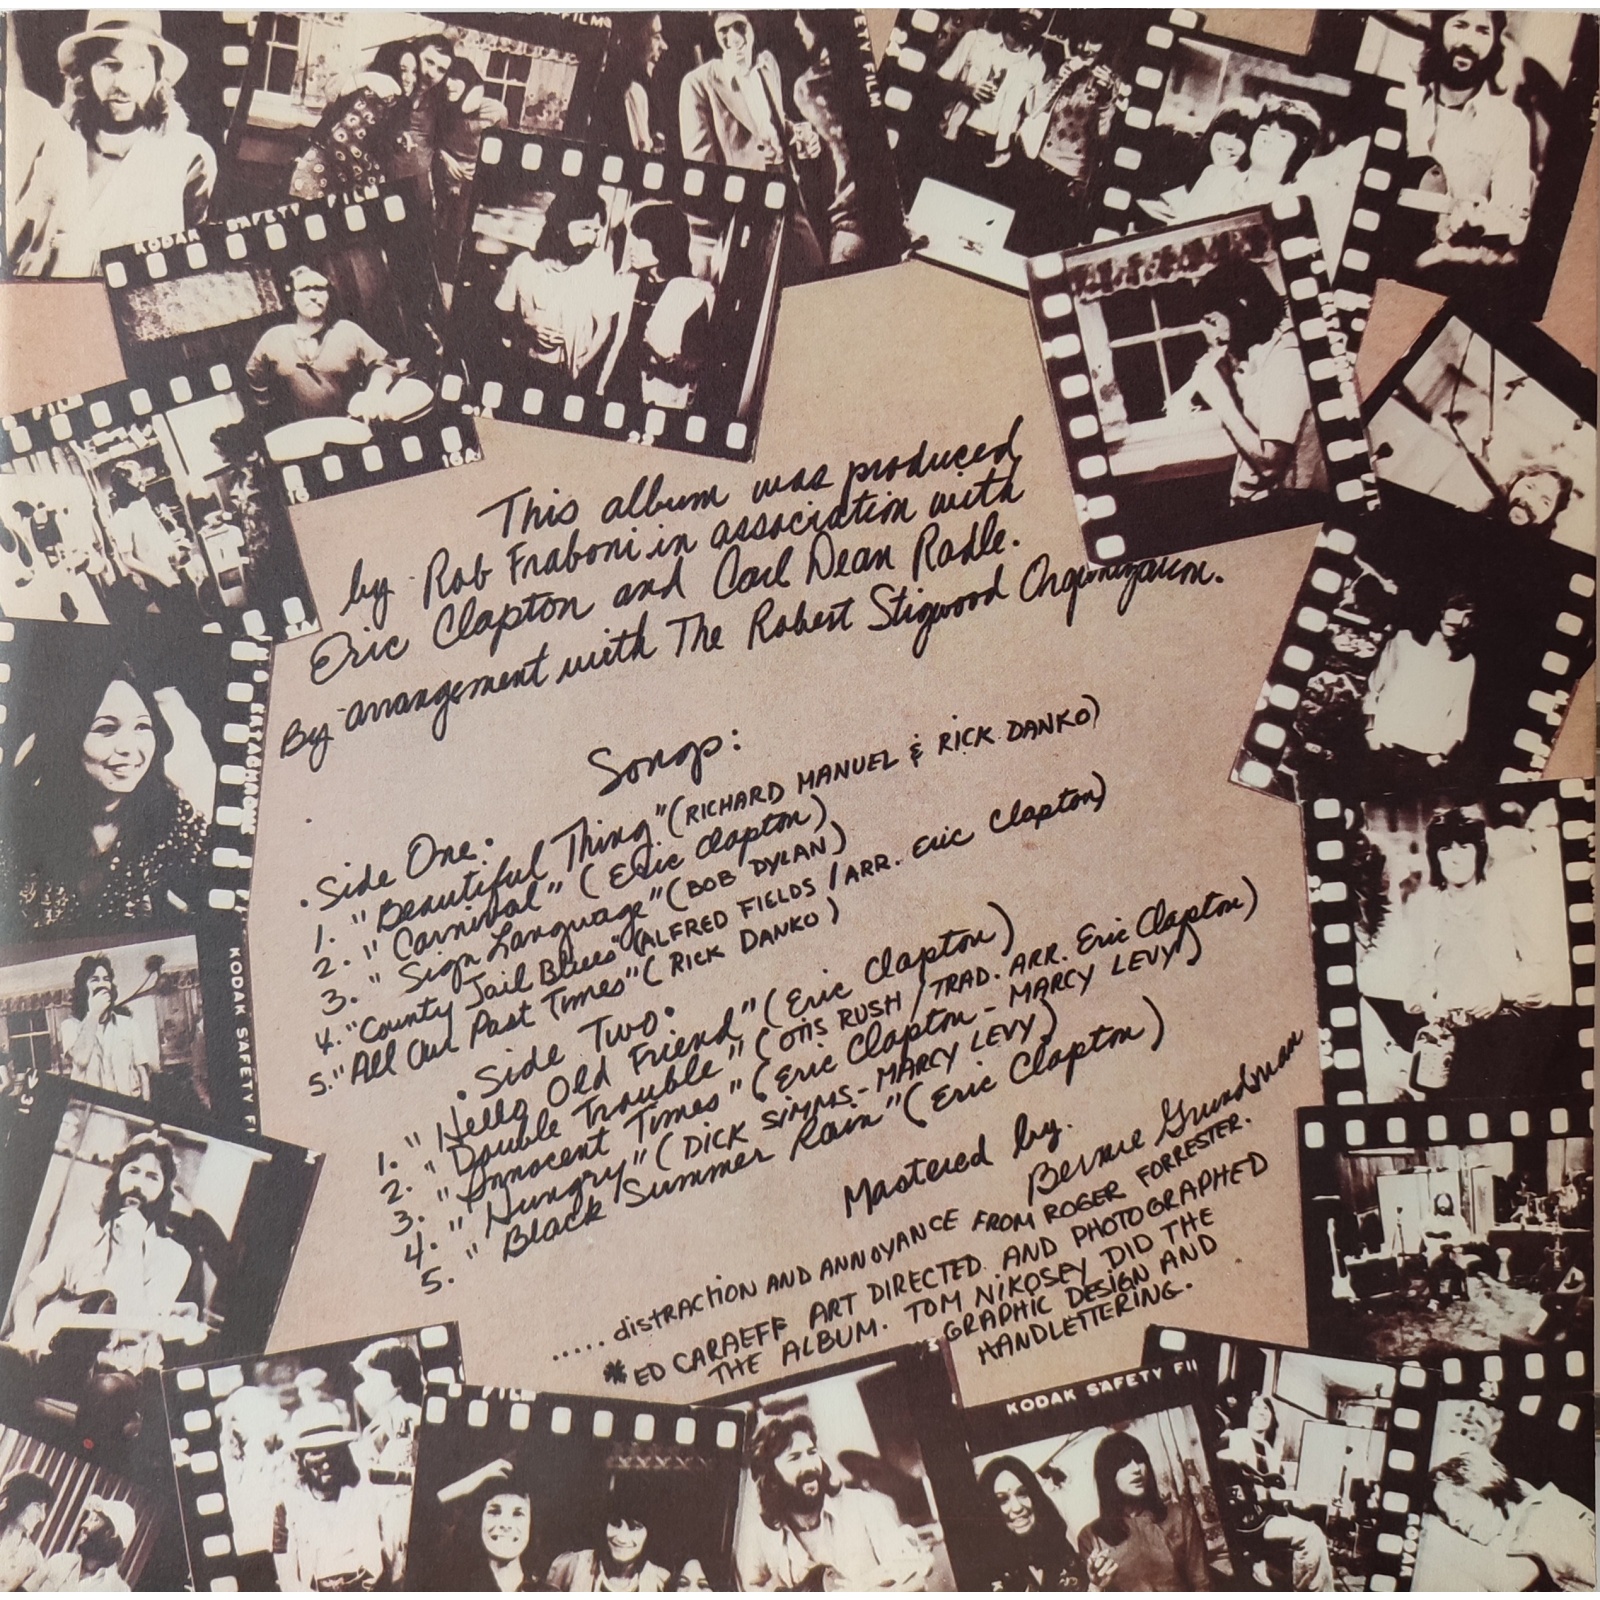 KODAK SAFETY FILM
This album was produced
by Rob Fraboni in association with
Eric Clapton and Carl Dean Radle.
By arrangement with The Robert Stigwood Organization.
Songs:
• Side One•
1. "Beautiful Thing" (RICHARD MANUEL & RICK DANKO)
2. "Carnival" (Eric Clapton)
3. "Sign Language" (BOB DYLAN)
4. "County Jail Blues" (ALFRED FIELDS / ARR. Eric Clapton)
5. "All Our Past Times" (RICK DANKO)
• Side Two•
1. "Hello Old Friend" (Eric Clapton)
2. "Double Trouble" (OTIS RUSH / TRAD. ARR. Eric Clapton)
3. "Innocent Times" (Eric Clapton - MARCY LEVY)
4. "Hungry" (DICK SIMMS - MARCY LEVY)
5. "Black Summer Rain" (Eric Clapton)
Mastered by.
Bernie Grundman
..... distraction AND ANNOYANCE FROM ROGER FORRESTER.
*ED CARAEFF ART DIRECTED AND PHOTOGRAPHED
THE ALBUM. TOM NIKOSEY DID THE
GRAPHIC DESIGN AND
HANDLETTERING.
KODAK SAFETY FI
KODAK SAFETY FI
31
16A
KODAK